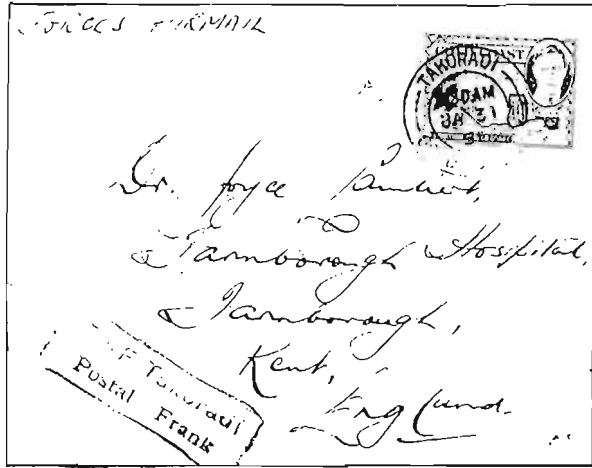 FORCES AIRMAIL
COAST
TAKORADI
30AM
JA 31
Dr. Joyce
Farnborough Hospital,
Farnborough,
Kent,
England.
F Takoradi
Postal Frank